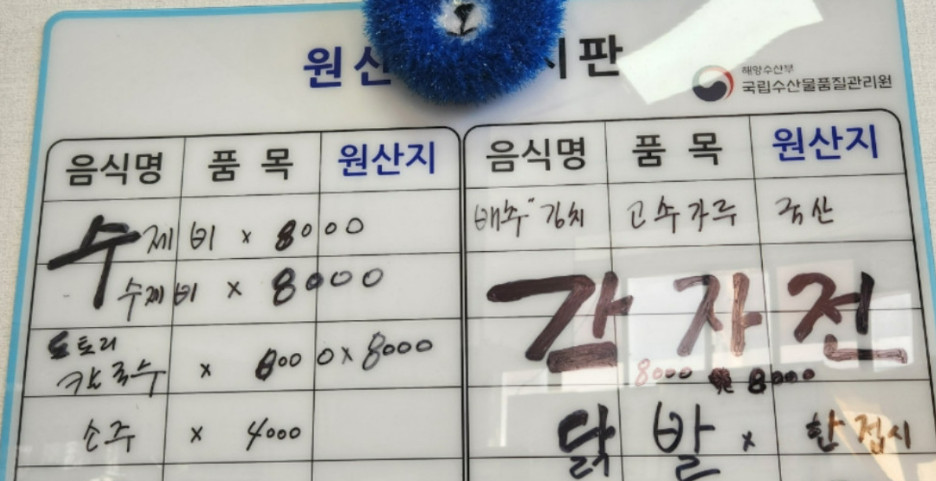 원산 시판
해양수산부
국립수산물품질관리원
음식명 품 목 원산지
수제비 x 8000
수제비 x 8000
도토리
칼국수 x 8000 x 8000
소주 x 4000
음식명 품 목 원산지
배추김치 고추가루 국산
감자전
8000 8000
닭발 x 한접시